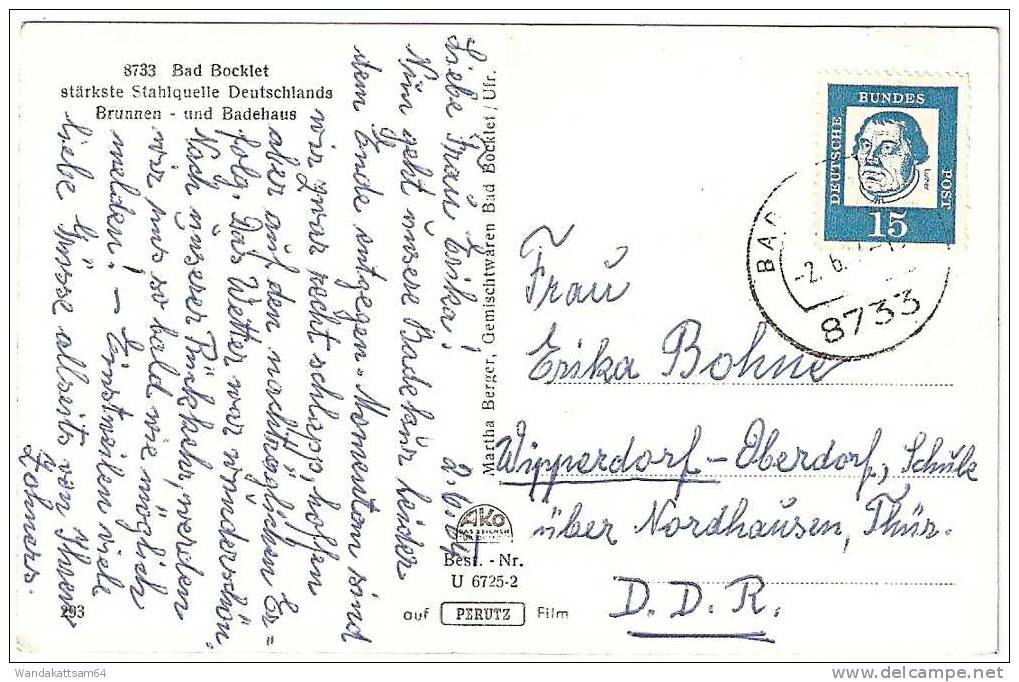 8733 Bad Bocklet
stärkste Stahlquelle Deutschlands
Brunnen - und Badehaus
2.6.64
Liebe Frau Erika!
Nun geht unsere Badekur leider
dem Ende entgegen. Momentan sind
wir zwar recht schlapp, hoffen
aber auf den nachträglichen Er=
folg. Das Wetter war wunderschön.
Nach unserer Rückkehr, werden
wir uns so bald wie möglich
melden! – Einstweilen viele
liebe Grüsse allseits von Ihren
293
Martha Berger, Gemischtwaren Bad Bocklet / Ufr.
AKO
Best. - Nr.
U 6725-2
auf PERUTZ Film
DEUTSCHE
BUNDES
POST
Luther
15
BAD
-2.6.
8733
Frau
Erika Bohne
Wipperdorf-Oberdorf, Schule
über Nordhausen, Thür.
D.D.R.
Wandakattsam64
delcampe.net